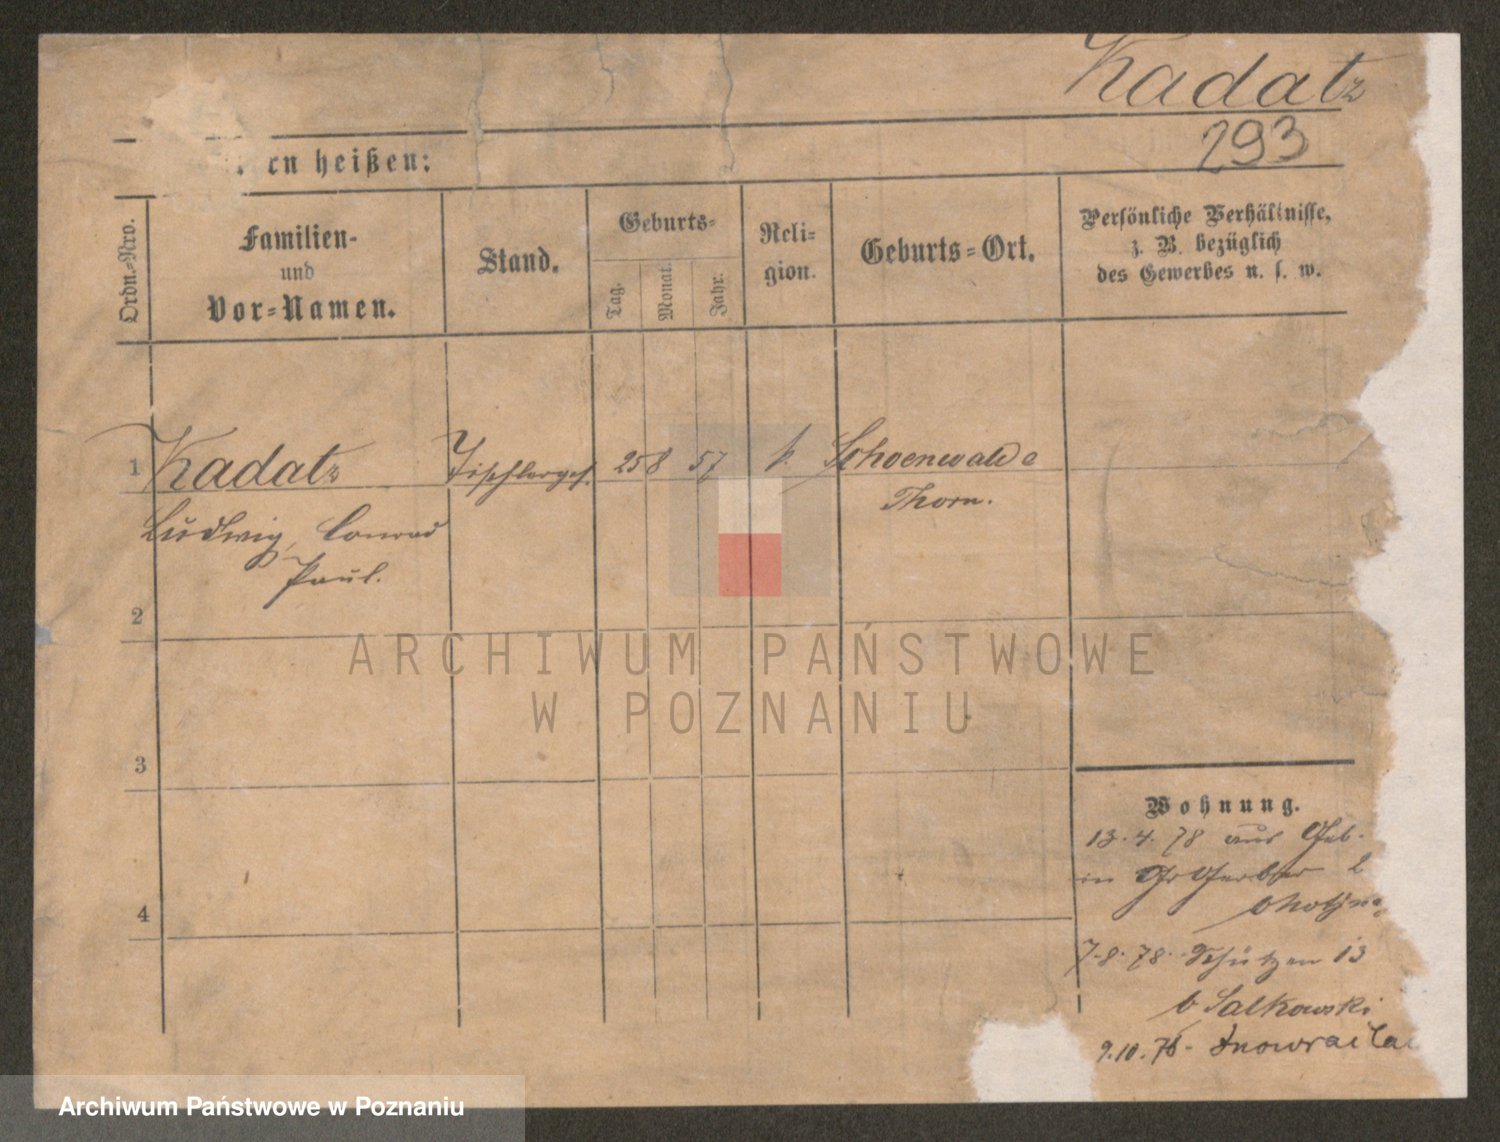 Kadatz
293
en heißen:
Ordn.-Nro.
Familien-
und
Vor-Namen.
Stand.
Geburts-
Tag.
Monat.
Jahr.
Reli-
gion.
Geburts-Ort.
Persönliche Verhältnisse,
z. B. bezüglich
des Gewerbes u. s. w.
1 Kadatz Tischlerges. 25 8 57 k. Schoenwalde
Thorn.
Ludwig, Conrad
Paul.
2
3
4
Wohnung.
13.4.78 aus Geb.
in Gr Gerber 2
7.8.78. Schützen 13
b Salkowski
9.10.78- Inowracla
ARCHIWUM PAŃSTWOWE
W POZNANIU
Archiwum Państwowe w Poznaniu